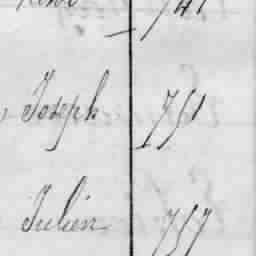 741
Joseph 751
Julien 757